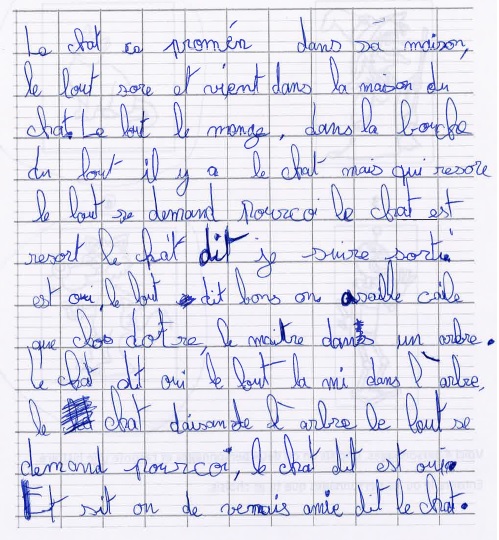 Le chat ce promén dans sa maison,
le lout sore et vient dans la maison du
chat. Le lout le mange, dans la bouche
du lout il y a le chat mais qui resore
le lout se demand pourcoi le chat est
resort le chat dit je suire sorti
est oui, le lout dit bons on asaille caile
que chos dotre, le maitre dans un arbre.
Le chat dit oui le lout la mi dans l'arbre,
le chat daisande l'arbre le lout se
demand pourcoi, le chat dit est oui.
Et sit on de vemais amie dit le chat.